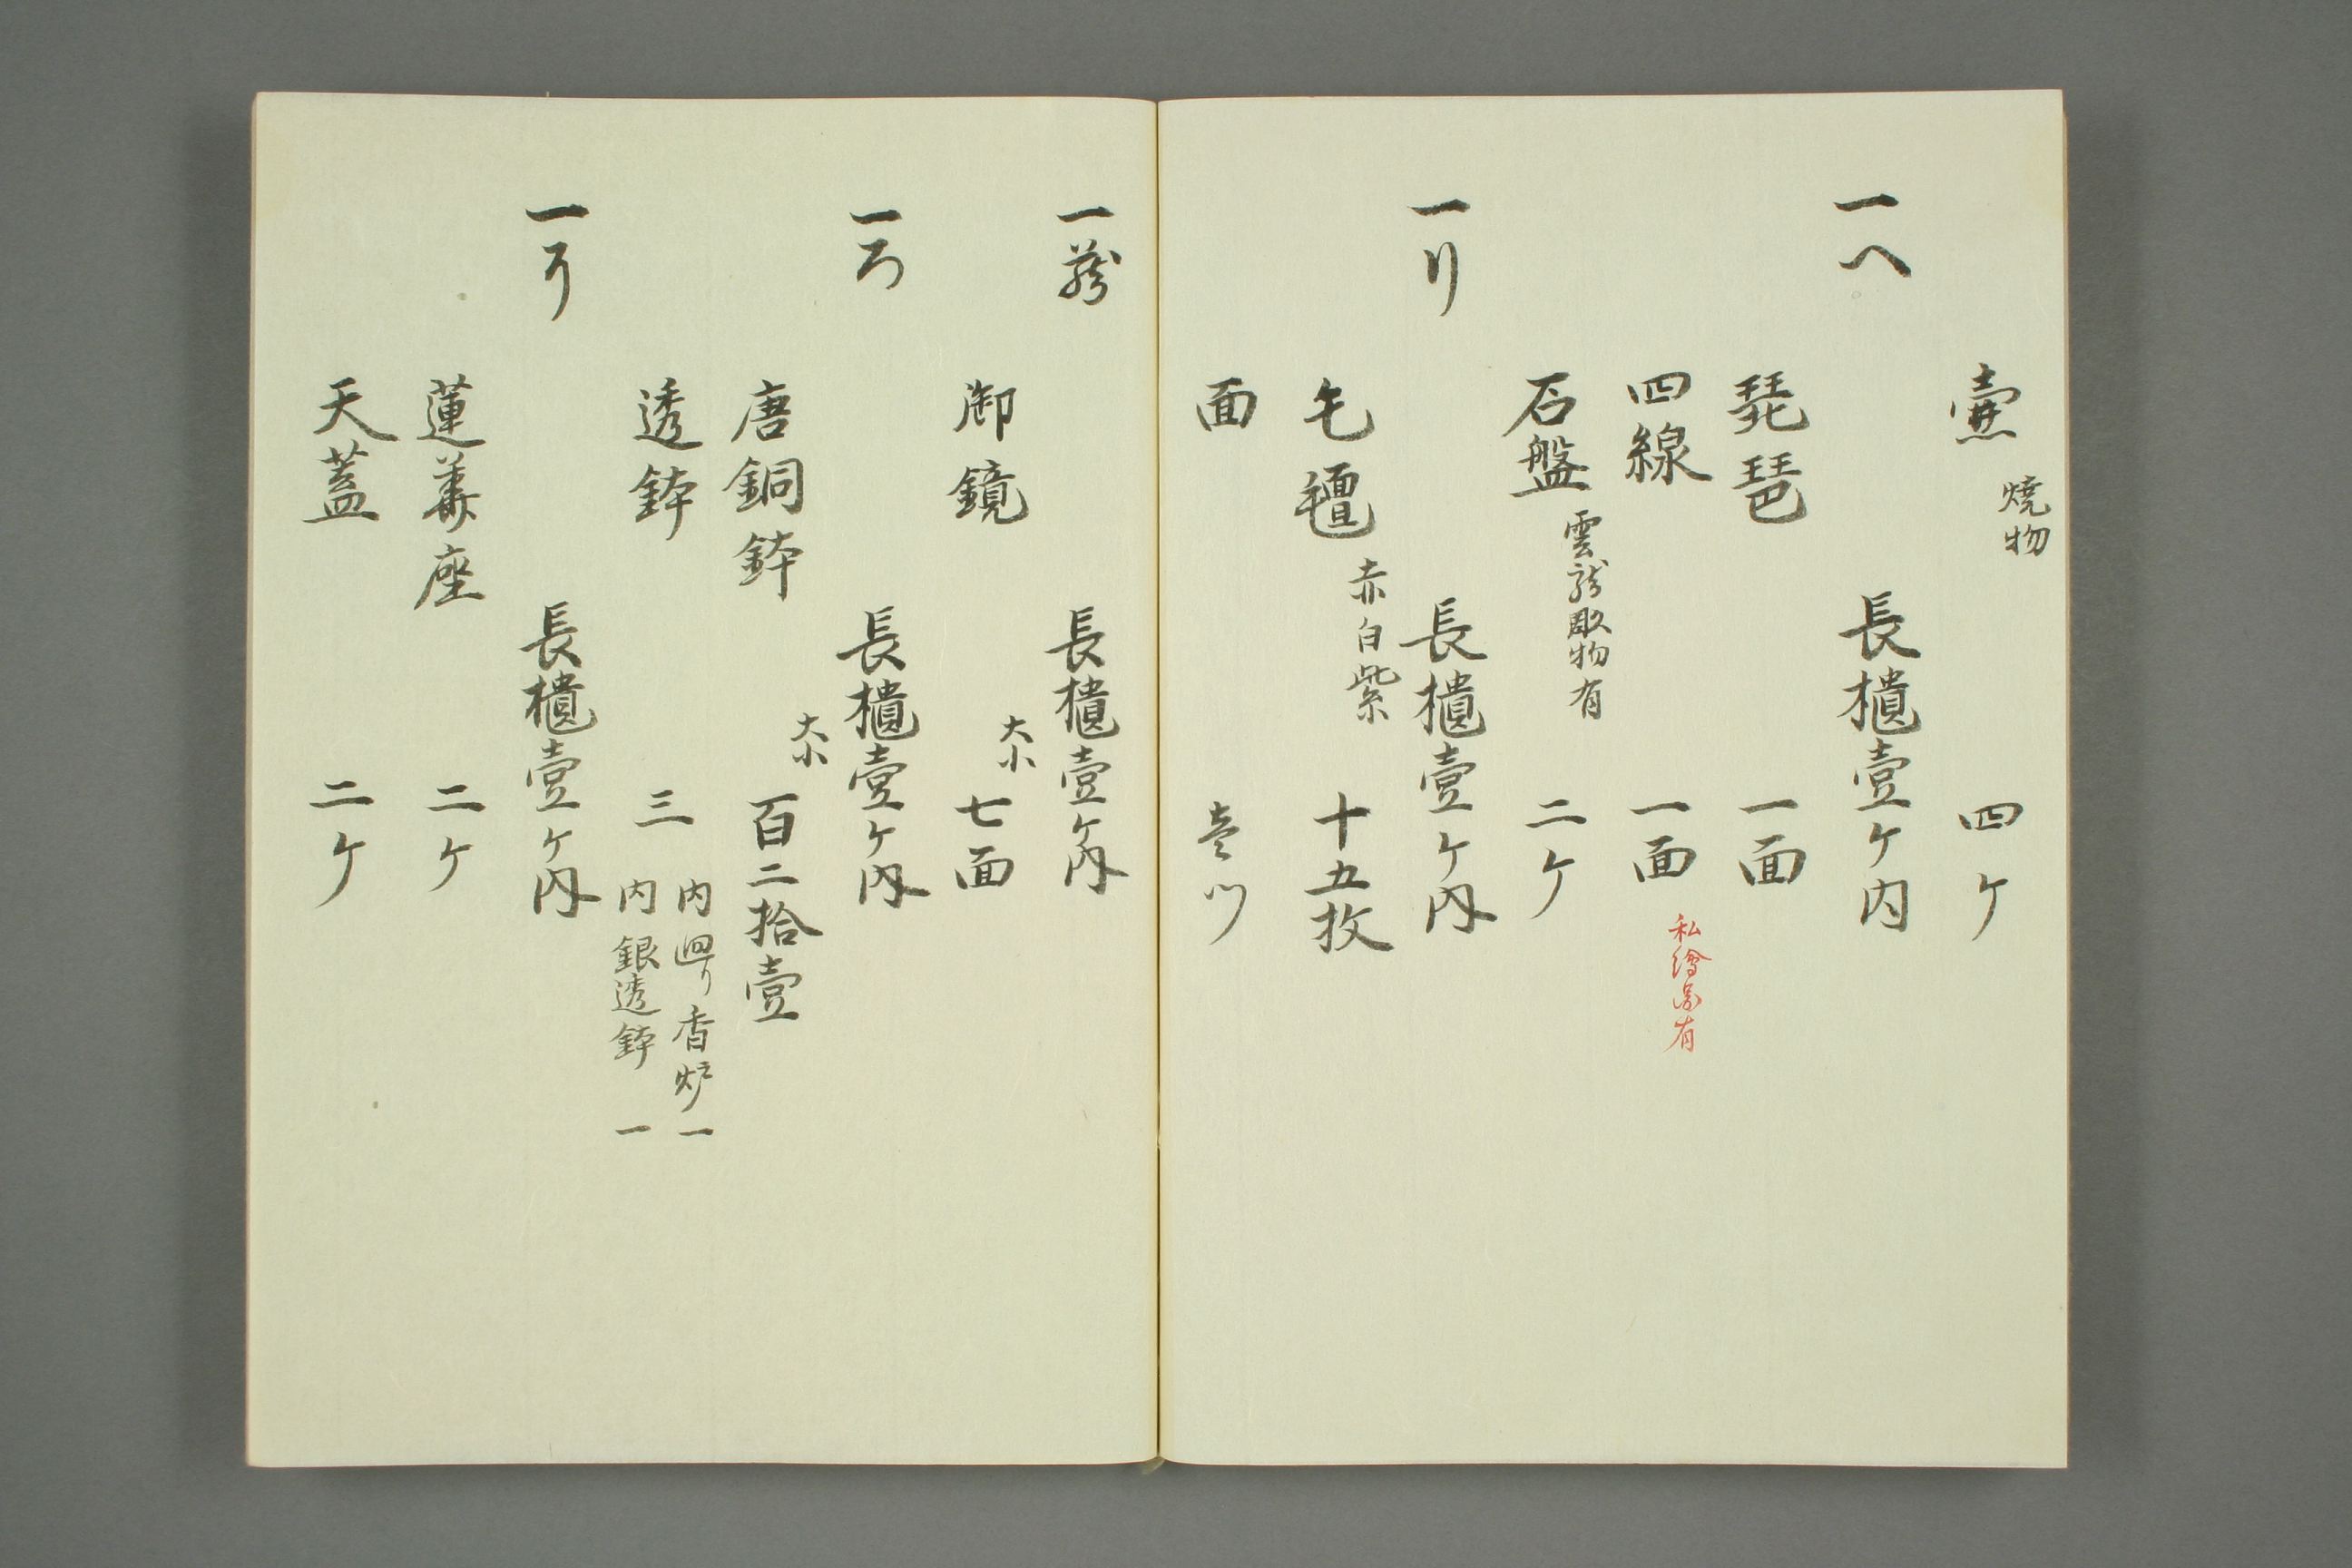 壷 焼物 四ケ
一へ 長櫃壹ケ内
琵琶 一面
四線 一面 私繪圖有
石盤 雲龍彫物有 二ケ
一り 長櫃壹ケ内
毛氊 赤白紫 十五枚
面 壱ツ
一 長櫃壹ケ内
御鏡 大小 七面
一ろ 長櫃壹ケ内
唐銅鉢 大小 百二拾壹
透鉢 三 内廻り香炉一
内銀透鉢一
一 長櫃壹ケ内
蓮華座 二ケ
天蓋 二ケ